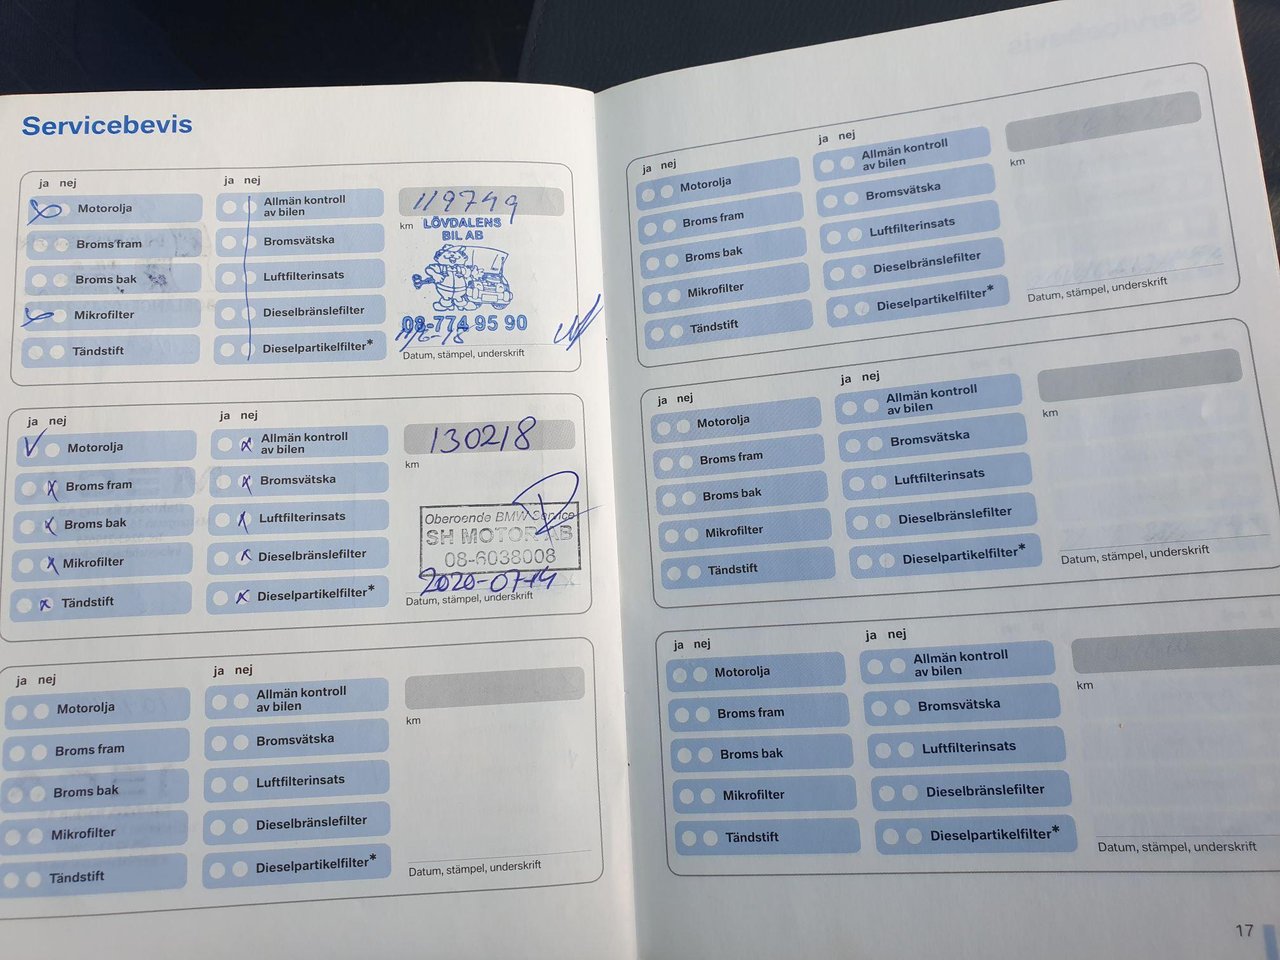 Servicebevis
ja nej
Motorolja
Broms fram
Broms bak
Mikrofilter
Tändstift
ja nej
Allmän kontroll
av bilen
Bromsvätska
Luftfilterinsats
Dieselbränslefilter
Dieselpartikelfilter*
119749
km
LÖVDALENS
BIL AB
08-774 95 90
Datum, stämpel, underskrift
ja nej
Motorolja
Broms fram
Broms bak
Mikrofilter
Tändstift
ja nej
Allmän kontroll
av bilen
Bromsvätska
Luftfilterinsats
Dieselbränslefilter
Dieselpartikelfilter*
130218
km
Oberoende BMW Service
SH MOTOR AB
08-6038008
2020-07-14
Datum, stämpel, underskrift
ja nej
Motorolja
Broms fram
Broms bak
Mikrofilter
Tändstift
ja nej
Allmän kontroll
av bilen
Bromsvätska
Luftfilterinsats
Dieselbränslefilter
Dieselpartikelfilter*
km
Datum, stämpel, underskrift
ja nej
Motorolja
Broms fram
Broms bak
Mikrofilter
Tändstift
ja nej
Allmän kontroll
av bilen
Bromsvätska
Luftfilterinsats
Dieselbränslefilter
Dieselpartikelfilter*
km
Datum, stämpel, underskrift
ja nej
Motorolja
Broms fram
Broms bak
Mikrofilter
Tändstift
ja nej
Allmän kontroll
av bilen
Bromsvätska
Luftfilterinsats
Dieselbränslefilter
Dieselpartikelfilter*
km
Datum, stämpel, underskrift
ja nej
Motorolja
Broms fram
Broms bak
Mikrofilter
Tändstift
ja nej
Allmän kontroll
av bilen
Bromsvätska
Luftfilterinsats
Dieselbränslefilter
Dieselpartikelfilter*
km
Datum, stämpel, underskrift
17